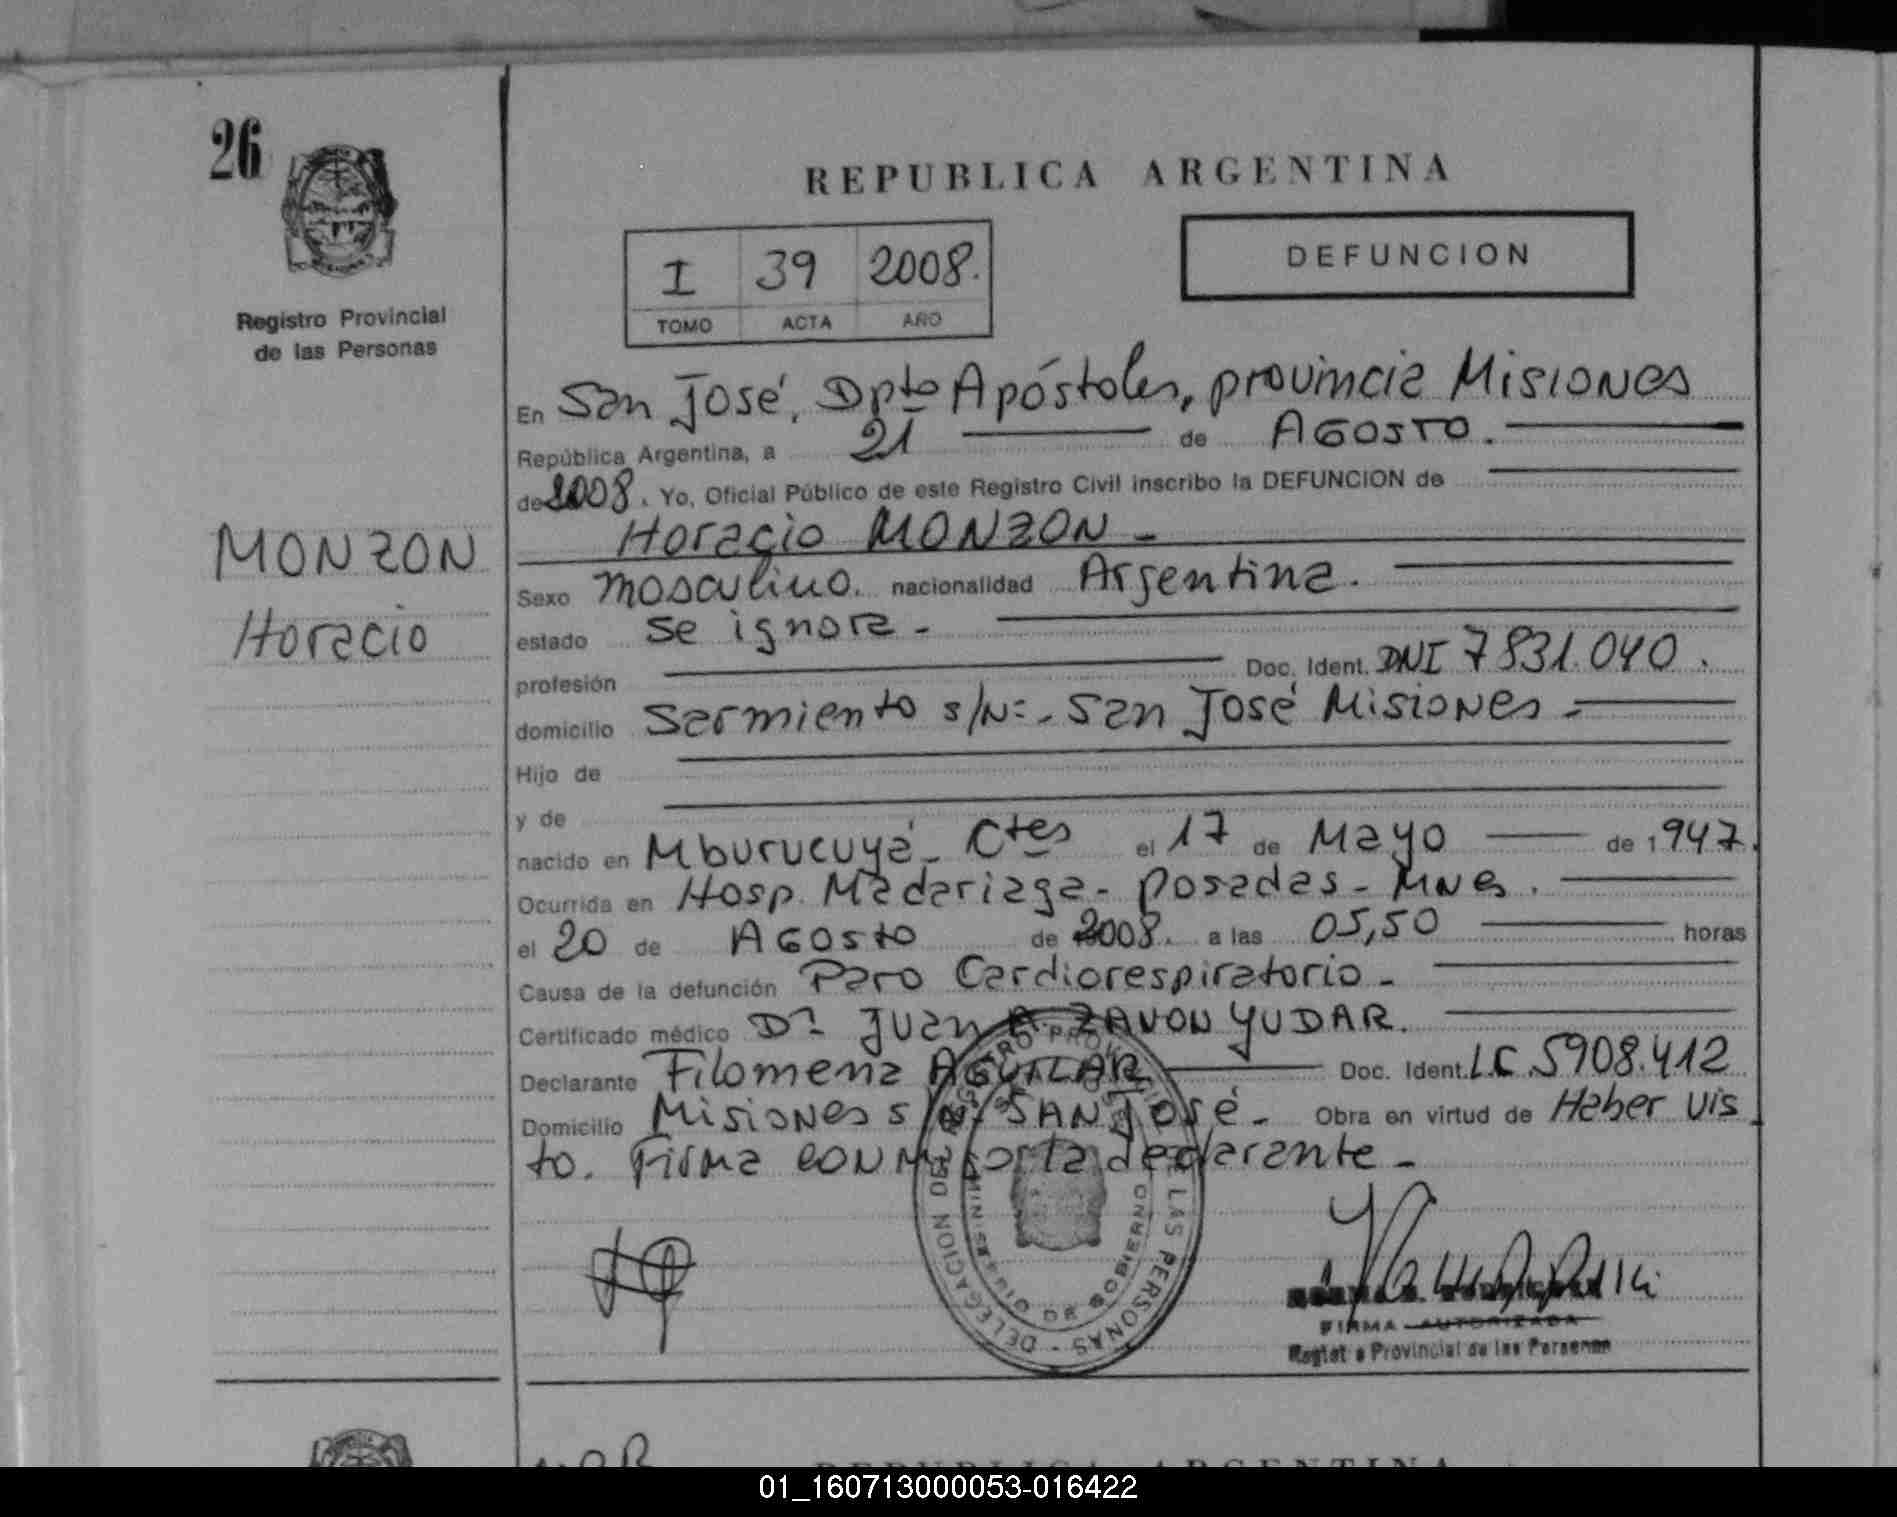 26
REPUBLICA ARGENTINA
I 39 2008.
TOMO ACTA AÑO
DEFUNCION
Registro Provincial
de las Personas
MONZON
Horacio
En San José, Dpto Apóstoles, provincia Misiones
República Argentina, a 21 de AGOSTO.
de 2008. Yo, Oficial Público de este Registro Civil inscribo la DEFUNCION de
Horacio MONZON -
Sexo masculino. nacionalidad Argentina.
estado se ignora -
profesión Doc. Ident. DNI 7831.040.
domicilio Sarmiento s/Nº - San José Misiones -
Hijo de
y de
nacido en Mburucuyá - Ctes el 17 de Mayo de 1947.
Ocurrida en Hosp. Madariaga - Posadas - Mnes.
el 20 de AGOSTO de 2008. a las 05,50 horas
Causa de la defunción Paro Cardiorespiratorio -
Certificado médico Dr. Juan A. ZAVON YUDAR.
Declarante Filomena AGUILAR Doc. Ident. LC. 5908.412
Domicilio Misiones s/Nº SAN José - Obra en virtud de Haber vis
to. Firma conmigo la declarante -
DELEGACION DEL REGISTRO PROVINCIAL DE LAS PERSONAS -
SAN JOSE
MINISTERIO DE GOBIERNO
FIRMA AUTORIZADA
Registro Provincial de las Personas
REPUBLICA ARGENTINA
01_160713000053-016422